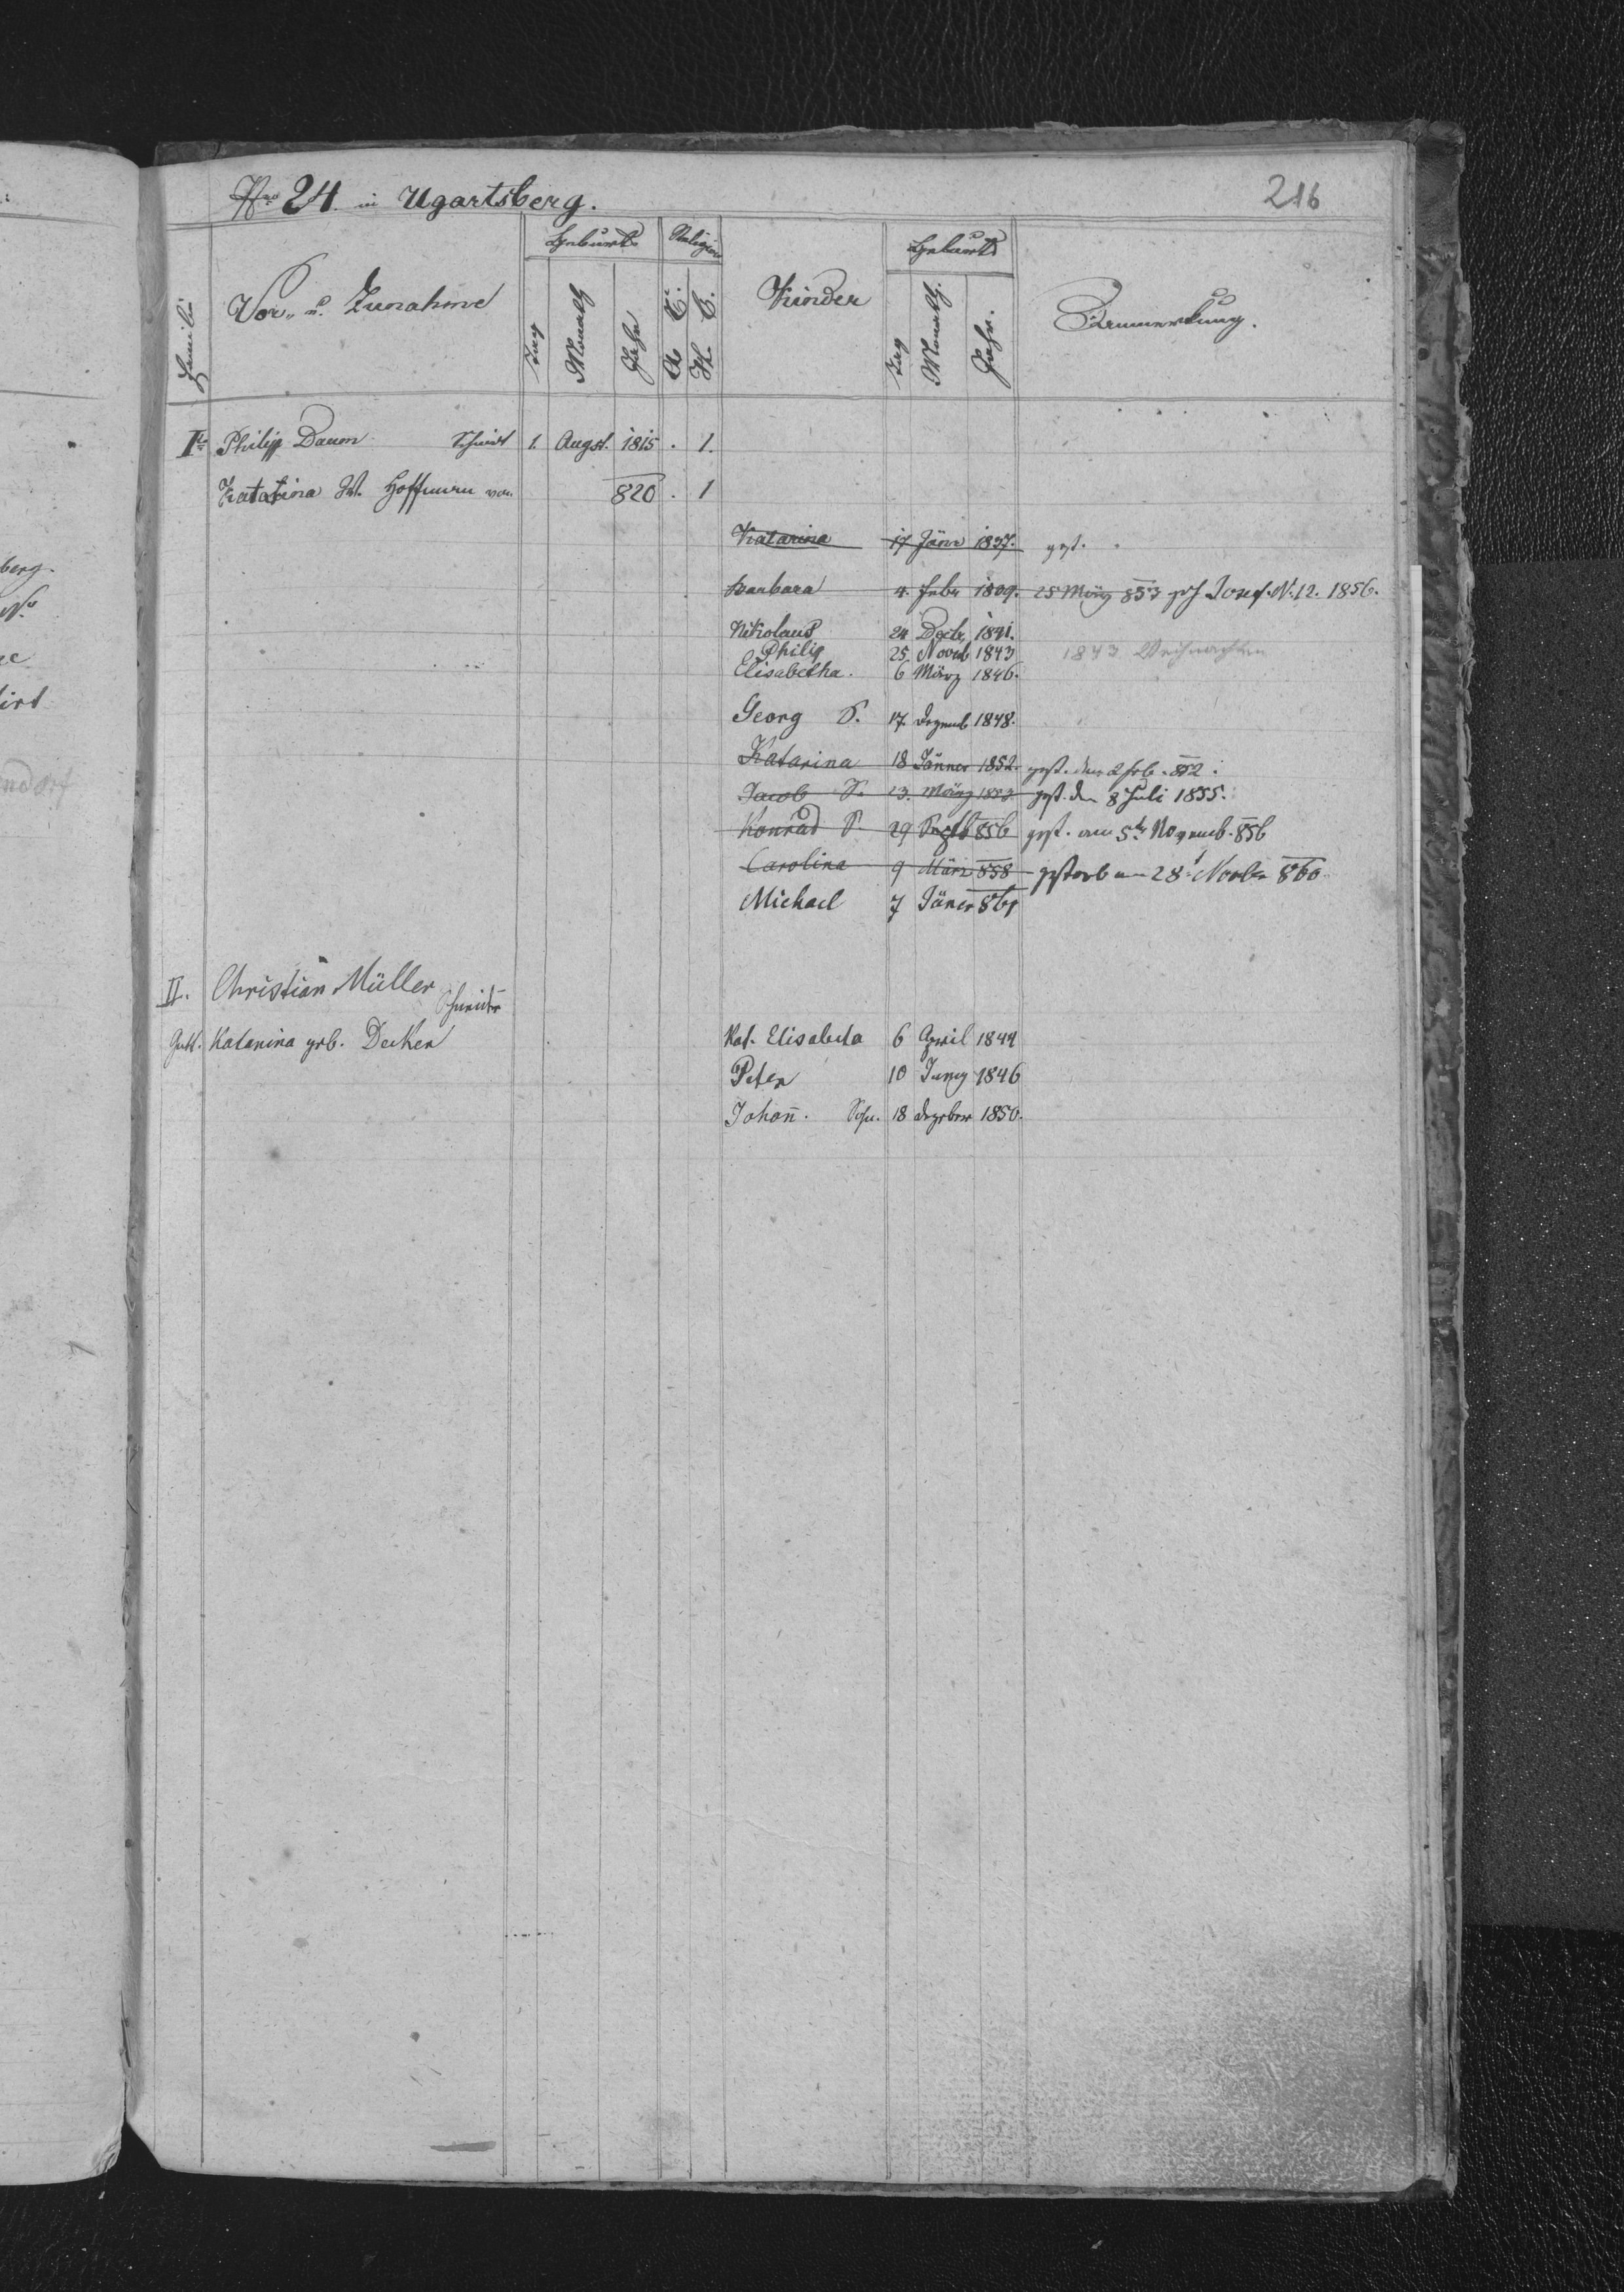 Nro 24. in Ugartsberg.
216
Familie
Vor- u. Zunahme
Geburts
Tag
Monath
Jahr
Religion
A. C.
H. C.
Kinder
Geburts
Tag
Monath.
Jahr.
Anmerkung.
I. Philipp Daum Schmidt 1. Augst. 1815 . 1.
Katarina Hoffmann 820 . 1
Katarina 17 Jäner 1837. gest.
Barbara 4. Febr 1839. 25 März 853 Josef. N. 12. 1856.
Nikolaus 24 Decbr 1841.
Philip 25. Novb 1843 1843 Weihnachten
Elisabetha. 6 März 1846.
Georg S. 17. Dezemb 1848.
Katarina 18 Jänner 1852. gest. den 2 Feb. 852.
Jacob S. 23. März 1853 gest. den 8 Juli 1855.
Konrad S. 29 Septb 856 gest. am 5t Novemb. 856
Carolina 9 März 858 gestorb am 28t Novbr 860
Michael 7 Jäner 861
II. Christian Müller
Schneider
Gatt. Katarina geb. Decker Kat. Elisabeta 6 April 1844
Peter 10 Juny 1846
Johañ. Sohn. 18 Dezeber 1850.
berg.
ndorf